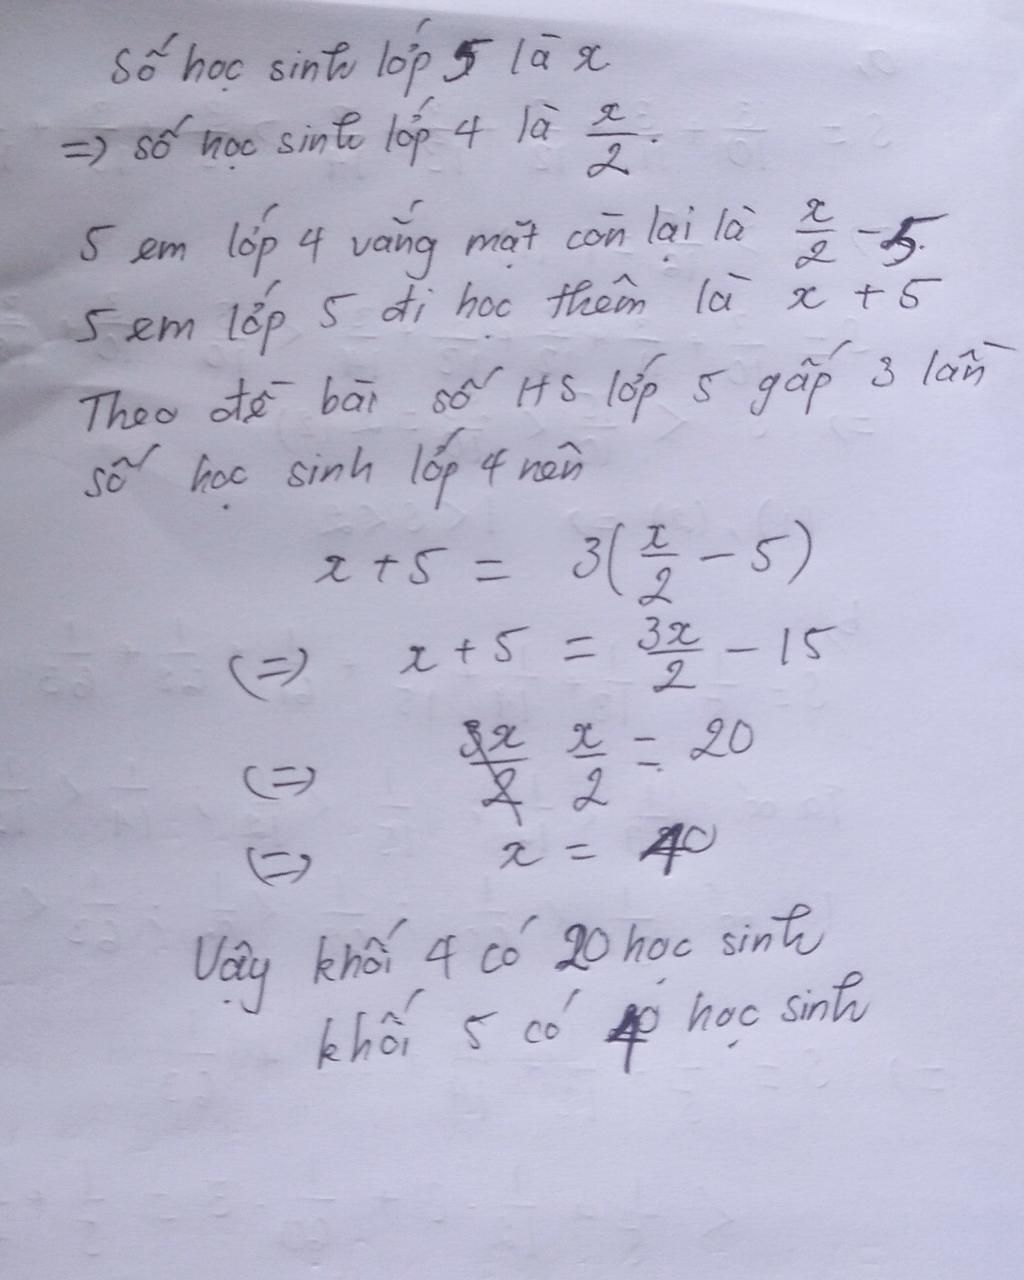 Số học sinh lớp 5 là x
=> số học sinh lớp 4 là x/2.
5 em lớp 4 vắng mặt còn lại là x/2 - 5.
5 em lớp 5 đi học thêm là x + 5
Theo đề bài số HS lớp 5 gấp 3 lần
số học sinh lớp 4 nên
x + 5 = 3(x/2 - 5)
(=) x + 5 = 3x/2 - 15
(=) x/2 = 20
(=) x = 40
Vậy khối 4 có 20 học sinh
khối 5 có 40 học sinh